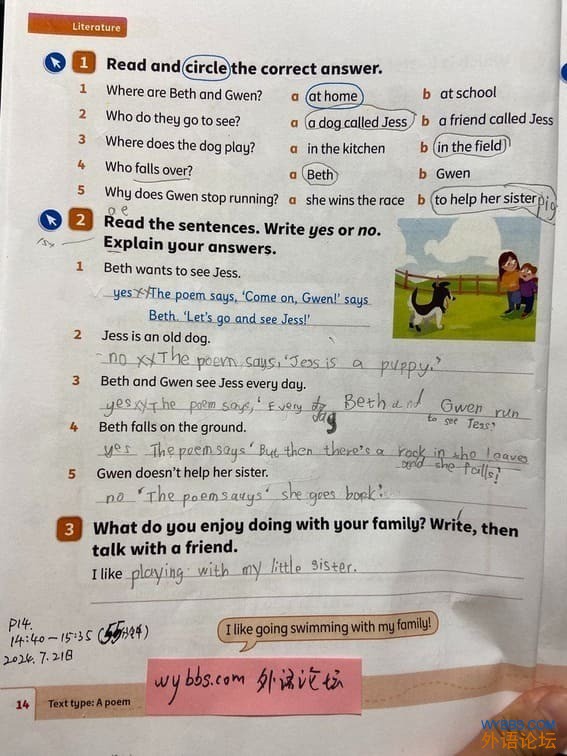 Literature
1 Read and circle the correct answer.
1 Where are Beth and Gwen? a at home b at school
2 Who do they go to see? a a dog called Jess b a friend called Jess
3 Where does the dog play? a in the kitchen b in the field
4 Who falls over? a Beth b Gwen
5 Why does Gwen stop running? a she wins the race b to help her sister pig
2 Read the sentences. Write yes or no.
Explain your answers.
1 Beth wants to see Jess.
yes The poem says, ‘Come on, Gwen!’ says
Beth. ‘Let’s go and see Jess!’
2 Jess is an old dog.
no xy The poem says, ‘Jess is a puppy.’
3 Beth and Gwen see Jess every day.
yes xy The poem says, ‘Every day Beth and Gwen run
to see Jess!
4 Beth falls on the ground.
yes The poem says ‘But then there's a rock in the leaves
and she falls!
5 Gwen doesn’t help her sister.
no ‘The poem says’ she goes back!
3 What do you enjoy doing with your family? Write, then
talk with a friend.
I like playing with my little sister.
I like going swimming with my family!
P14.
14:40-15:35 (55分钟)
2024.7.21日
wybbs.com 外语论坛
14 Text type: A poem
WYBBS.COM
外语论坛